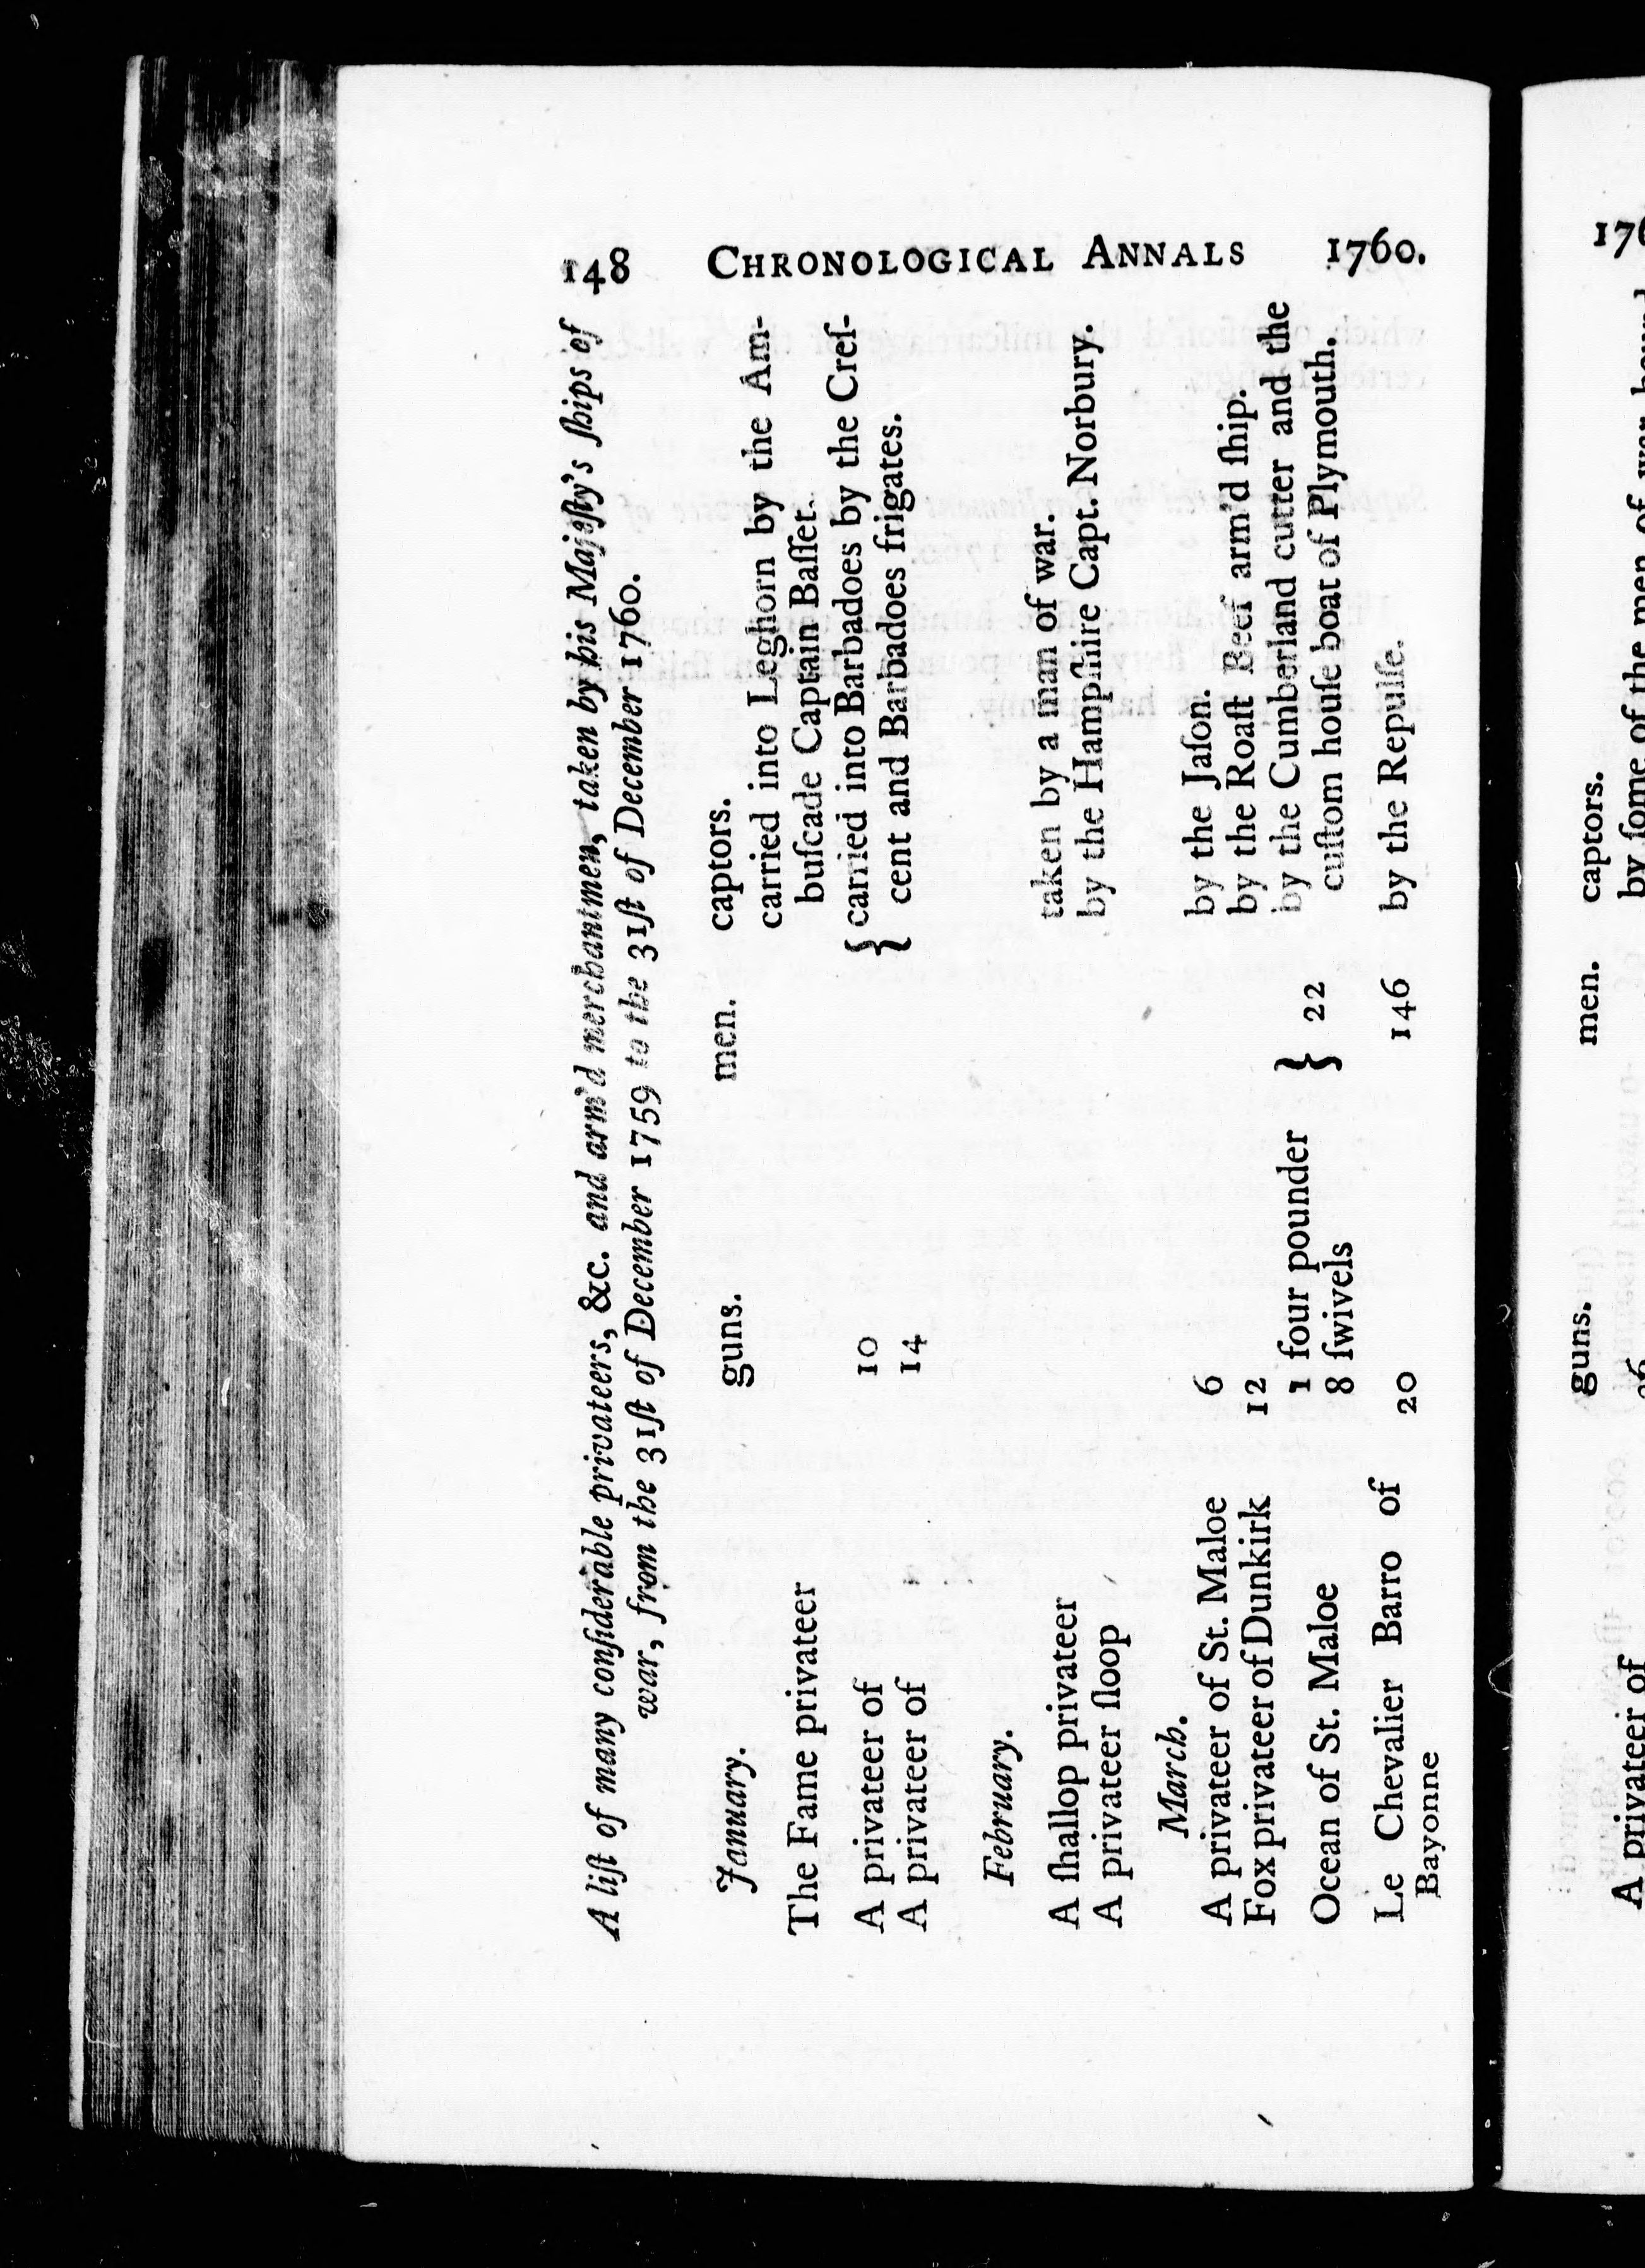 148 CHRONOLOGICAL ANNALS 1760.
A liſt of many conſiderable privateers, &c. and arm'd merchantmen, taken by his Majeſty's ſhips of
war, from the 31ſt of December 1759 to the 31ſt of December 1760.
January. guns. men. captors.
The Fame privateer carried into Leghorn by the Am-
buſcade Captain Baſſet.
A privateer of 10 { carried into Barbadoes by the Creſ-
A privateer of 14 cent and Barbadoes frigates.
February.
A ſhallop privateer taken by a man of war.
A privateer ſloop by the Hampſhire Capt. Norbury.
March.
A privateer of St. Maloe 6 by the Jaſon.
Fox privateer of Dunkirk 12 by the Roaſt Beef arm'd ſhip.
Ocean of St. Maloe 1 four pounder } 22 by the Cumberland cutter and the
8 ſwivels cuſtom houſe boat of Plymouth.
Le Chevalier Barro of 20 146 by the Repulſe.
Bayonne
176
guns. men. captors.
A privateer of 26 by ſome of the men of war bound